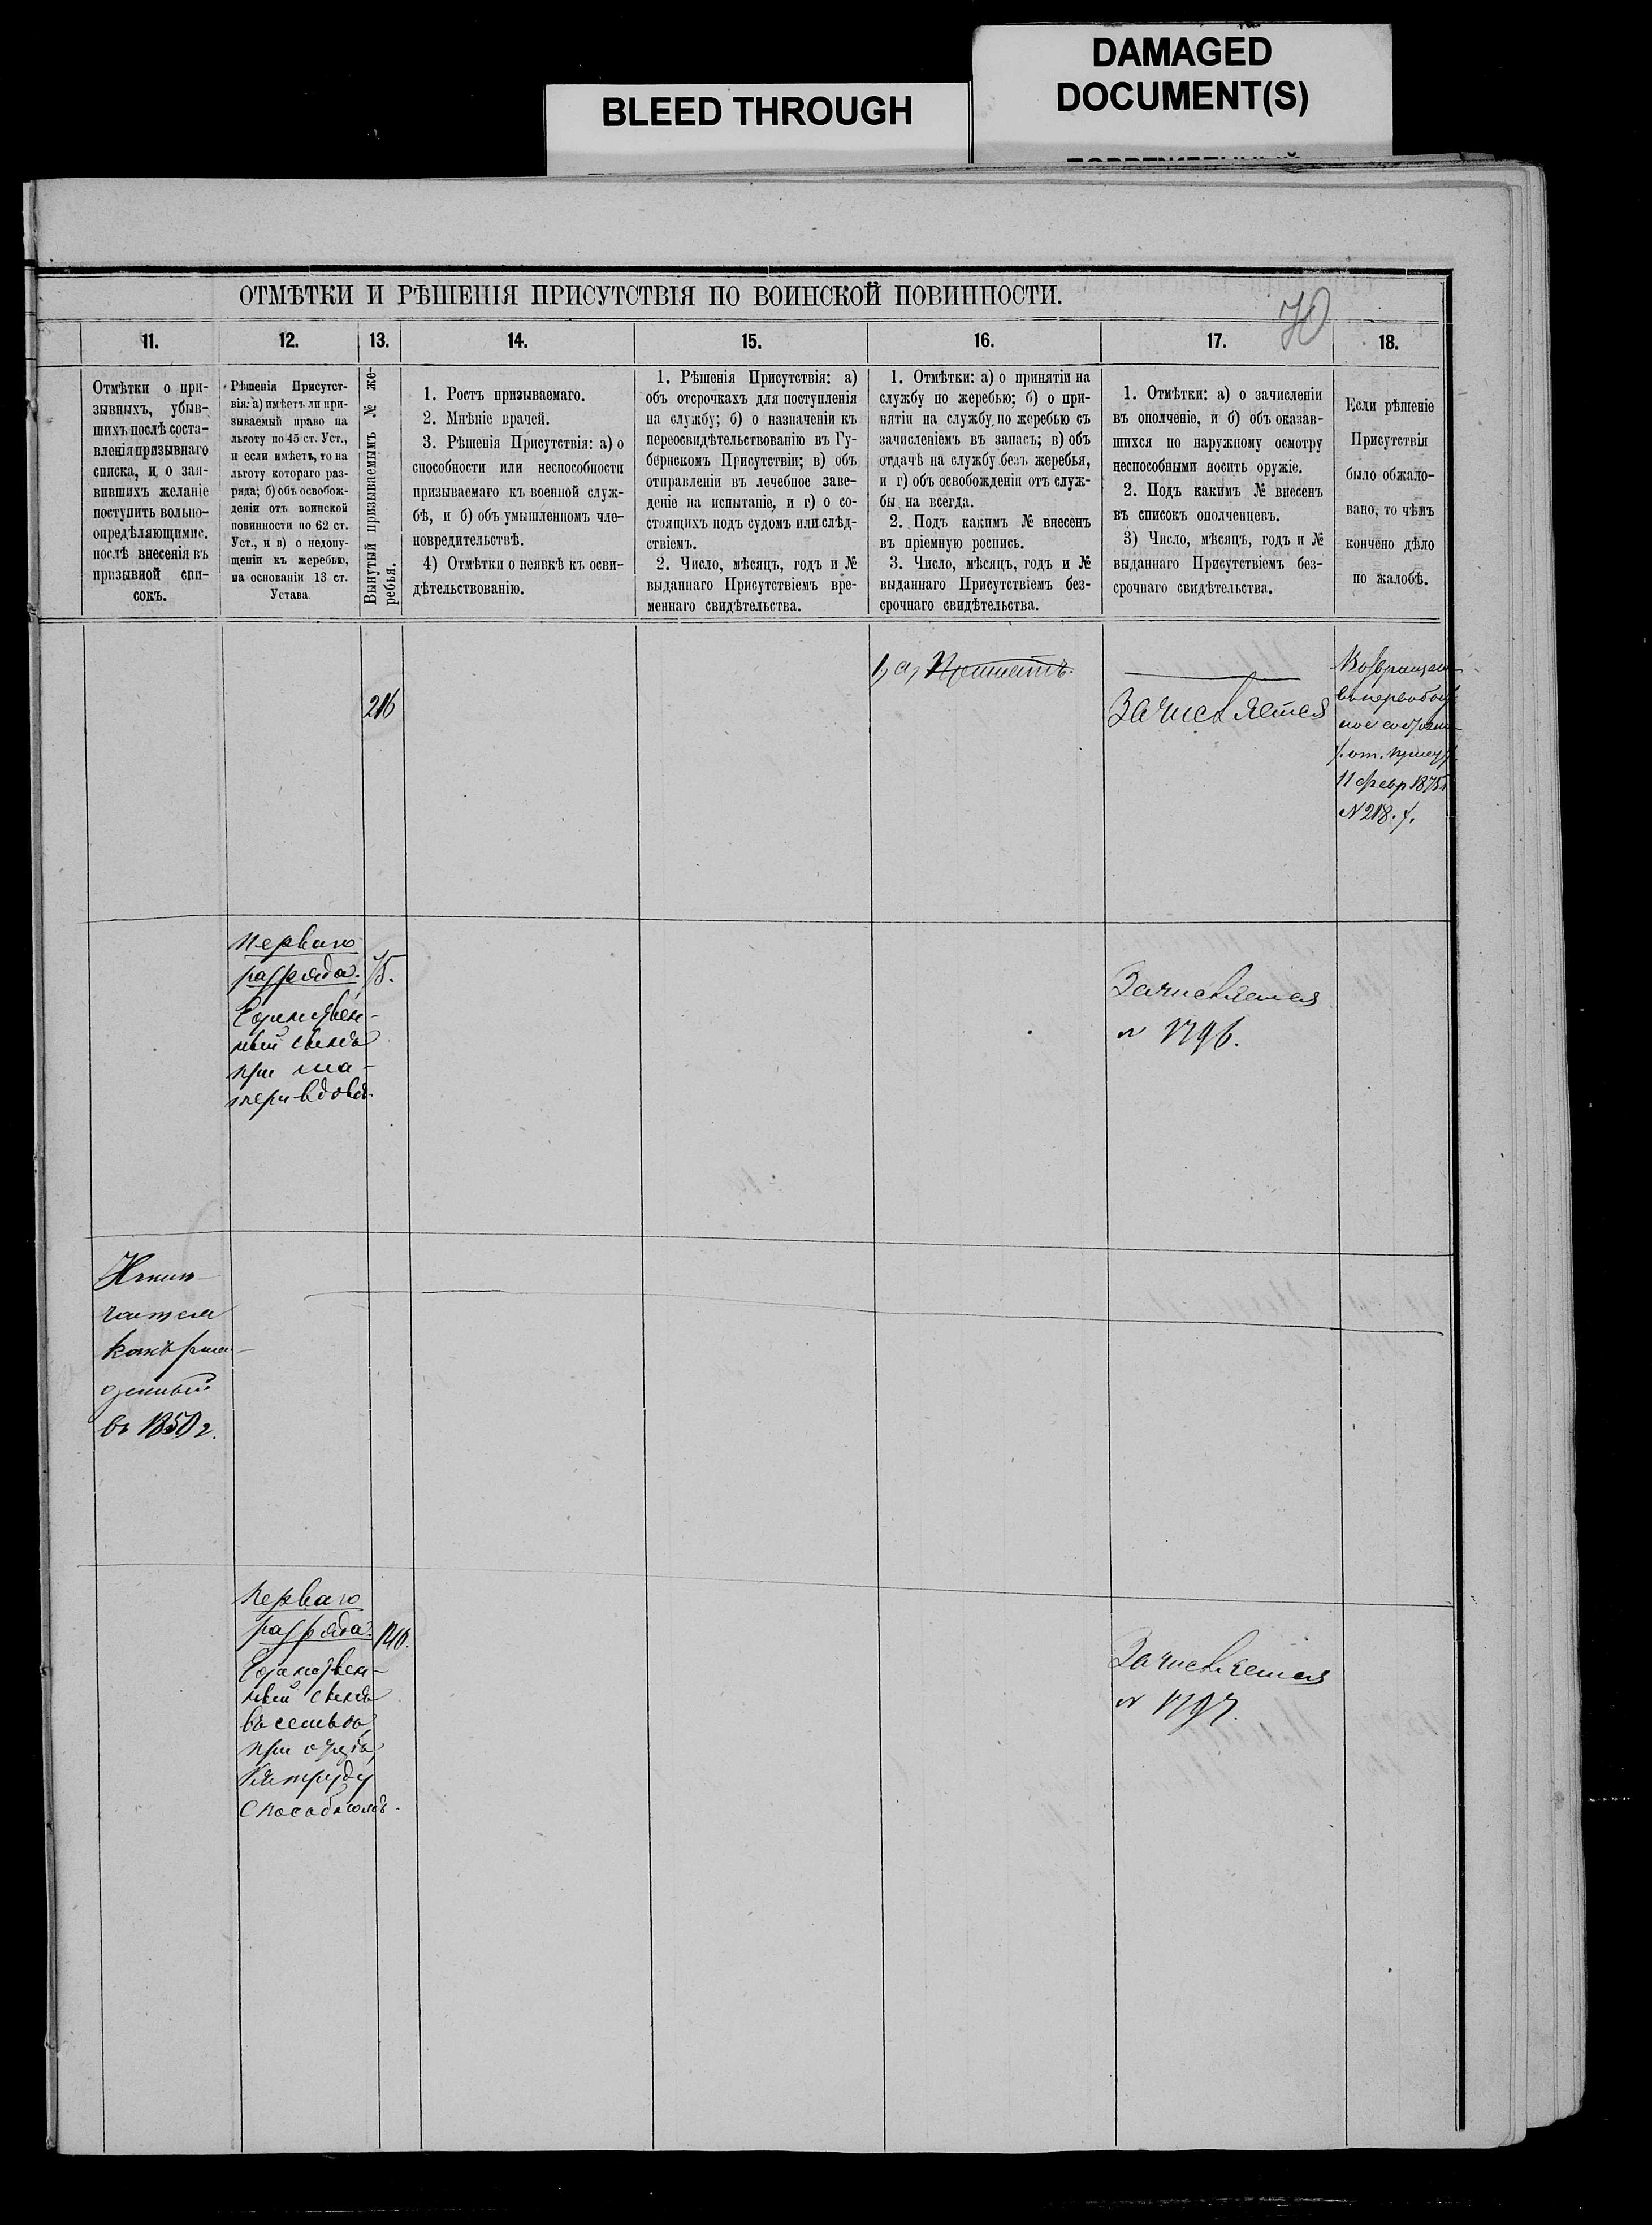 DAMAGED
DOCUMENT(S)
BLEED THROUGH
ОТМѢТКИ И РѢШЕНІЯ ПРИСУТСТВІЯ ПО ВОИНСКОЙ ПОВИННОСТИ.
70
11.
12.
13.
14.
15.
16.
17.
18.
Отмѣтки о при-
зывныхъ, убыв-
шихъ послѣ соста-
вленія призывнаго
списка, и о зая-
вившихъ желаніе
поступить вольно-
опредѣляющимис.
послѣ внесенія въ
призывной спи-
сокъ.
Рѣшенія Присутст-
вія: а) имѣетъ ли при-
зываемый право на
льготу по 45 ст. Уст.,
и если имѣетъ, то на
льготу котораго раз-
ряда; б) объ освобож-
деніи отъ воинской
повинности по 62 ст.
Уст., и в) о недопу-
щеніи къ жеребью,
на основаніи 13 ст.
Устава
Вынутый призываемымъ № же-
ребья.
1. Ростъ призываемаго.
2. Мнѣніе врачей.
3. Рѣшенія Присутствія: а) о
способности или неспособности
призываемаго къ военной служ-
бѣ, и б) объ умышленномъ чле-
новредительствѣ.
4) Отмѣтки о неявкѣ къ осви-
дѣтельствованію.
1. Рѣшенія Присутствія: а)
объ отсрочкахъ для поступленія
на службу; б) о назначеніи къ
переосвидѣтельствованію въ Гу-
бернскомъ Присутствіи; в) объ
отправленіи въ лечебное заве-
деніе на испытаніе, и г) о со-
стоящихъ подъ судомъ или слѣд-
ствіемъ.
2. Число, мѣсяцъ, годъ и №
выданнаго Присутствіемъ вре-
меннаго свидѣтельства.
1. Отмѣтки: а) о принятіи на
службу по жеребью; б) о при-
нятіи на службу по жеребью съ
зачисленіемъ въ запасъ; в) объ
отдачѣ на службу безъ жеребья,
и г) объ освобожденіи отъ служ-
бы на всегда.
2. Подъ какимъ № внесенъ
въ пріемную роспись.
3. Число, мѣсяцъ, годъ и №
выданнаго Присутствіемъ без-
срочнаго свидѣтельства.
1. Отмѣтки: а) о зачисленіи
въ ополченіе, и б) объ оказав-
шихся по наружному осмотру
неспособными носить оружіе.
2. Подъ какимъ № внесенъ
въ списокъ ополченцевъ.
3) Число, мѣсяцъ, годъ и №
выданнаго Присутствіемъ без-
срочнаго свидѣтельства.
Если рѣшеніе
Присутствія
было обжало-
вано, то чѣмъ
кончено дѣло
по жалобѣ.
216
1, а, Принятъ.
Зачисляется
11 февр 1875
№ 218.
перваго
разряда.
Единствен-
ный сынъ
при ма-
тери вдовѣ.
75.
Зачисляется
№ 1796.
какъ рож-
денный
въ 1850 г.
Перваго
разряда.
Единствен-
ный сынъ
въ семьѣ
при отцѣ
къ труду
способномъ.
140.
Зачисляется
№ 1797.